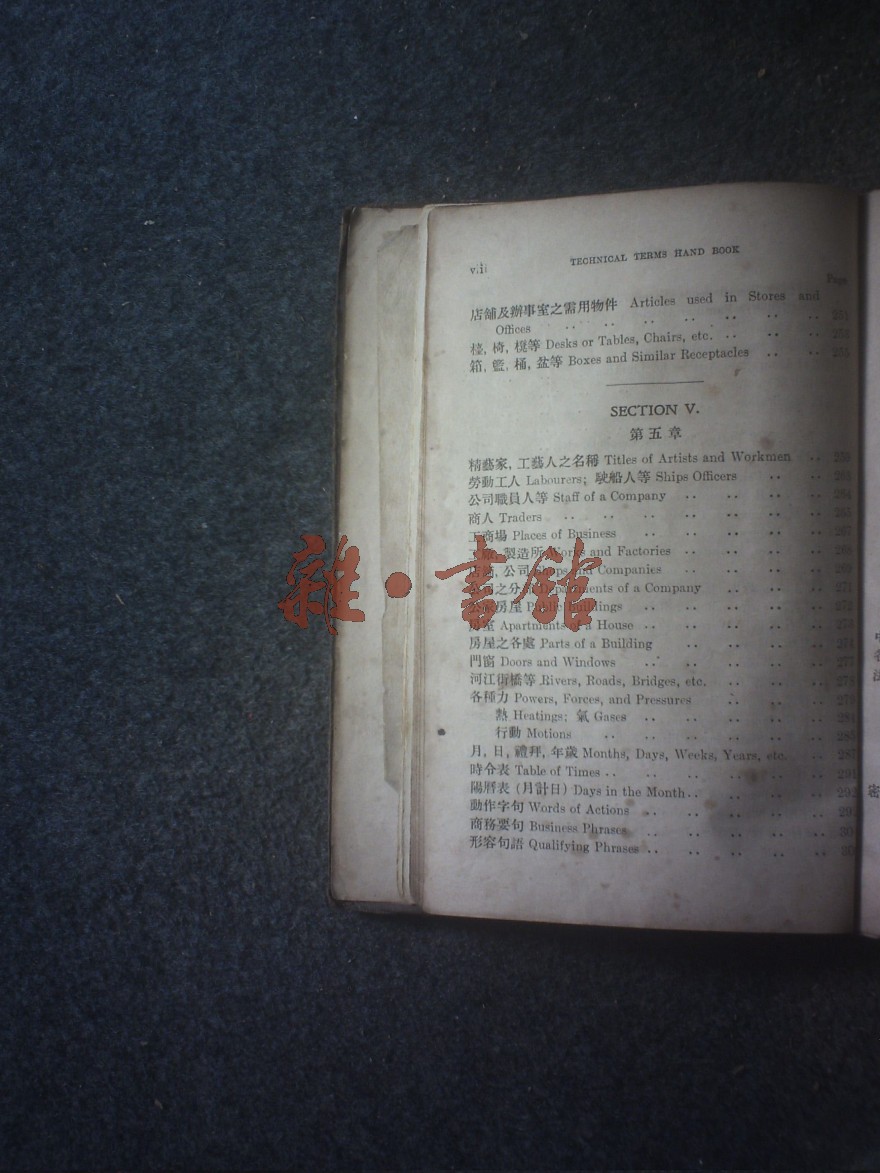 viii TECHNICAL TERMS HAND BOOK
Page
店舖及辦事室之需用物件 Articles used in Stores and
Offices .. .. .. .. .. .. .. 251
檯, 椅, 櫈等 Desks or Tables, Chairs, etc. .. .. ..
箱, 籃, 桶, 盆等 Boxes and Similar Receptacles .. .. 255
SECTION V.
第五章
精藝家, 工藝人之名稱 Titles of Artists and Workmen .. 259
勞動工人 Labourers; 駛船人等 Ships Officers .. .. 261
公司職員人等 Staff of a Company .. .. .. .. 264
商人 Traders .. .. .. .. .. .. .. 265
工商場 Places of Business .. .. .. .. .. 267
製造所 Works and Factories .. .. .. .. 268
公司 Shops and Companies .. .. .. .. 269
之分 Departments of a Company .. .. .. 271
房屋 Public Buildings .. .. .. .. .. 272
房室 Apartments of a House .. .. .. .. .. 273
房屋之各處 Parts of a Building .. .. .. .. 274
門窗 Doors and Windows .. .. .. .. .. 277
河江街橋等 Rivers, Roads, Bridges, etc. .. .. .. 278
各種力 Powers, Forces, and Pressures .. .. .. 279
熱 Heatings; 氣 Gases .. .. .. .. .. 281
行動 Motions .. .. .. .. .. .. 285
月, 日, 禮拜, 年歲 Months, Days, Weeks, Years, etc. .. 287
時令表 Table of Times .. .. .. .. .. .. 291
陽曆表 (月計日) Days in the Month .. .. .. .. 292
動作字句 Words of Actions .. .. .. .. .. 29
商務要句 Business Phrases .. .. .. .. .. 30
形容句語 Qualifying Phrases .. .. .. .. .. 30
雜·書館
密